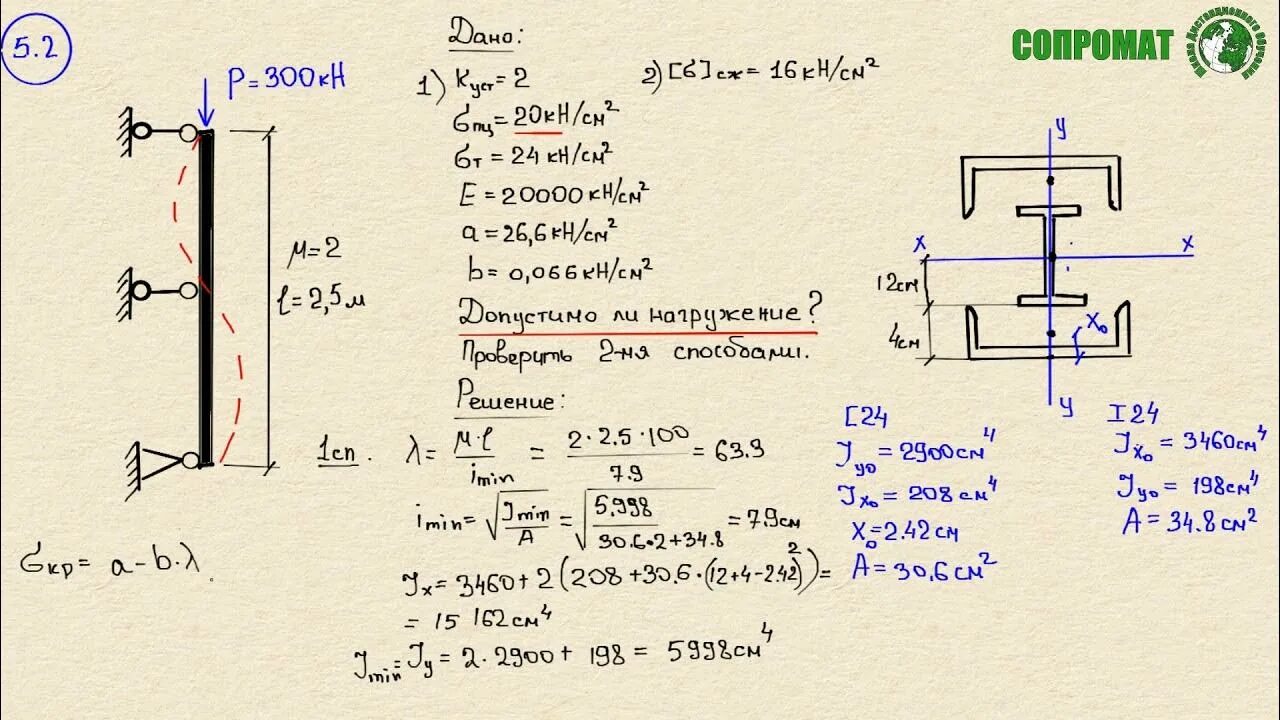 5.2
СОПРОМАТ
P=300кН
μ=2
ℓ=2,5м
Дано:
1) Kуст=2
2) [σ]сж=16кН/см²
σпц=20кН/см²
σт=24кН/см²
E=20000кН/см²
a=26,6кН/см²
b=0,066кН/см²
Допустимо ли нагружение?
Проверить 2-мя способами.
Решение:
1сп. λ= μ·ℓ/imin = 2·2.5·100/7.9 = 63.3
imin=√(Jmin/A) = √(5.998/(30.6·2+34.8)) = 7.9см
Jx=3460+2(208+30.6·(12+4-2.42)²)=
= 15 162см⁴
Jmin=Jy=2·2900+198=5998см⁴
σкр=a-b·λ
y
x
x
12см
4см
x₀
y
[24
Jy₀=2900см⁴
Jx₀=208см⁴
X₀=2.42см
A=30,6см²
I24
Jx₀=3460см⁴
Jy₀=198см⁴
A=34.8см²